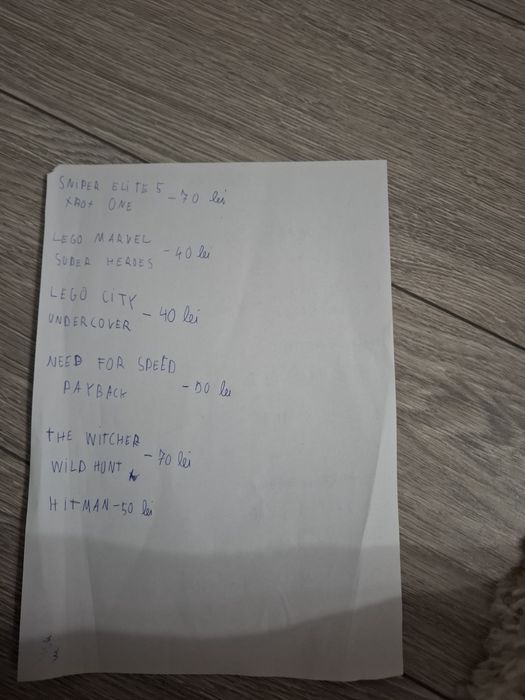 SNIPER ELITE 5
XBOX ONE - 70 lei
LEGO MARVEL
SUPER HEROES - 40 lei
LEGO CITY
UNDERCOVER - 40 lei
NEED FOR SPEED
PAYBACK - 50 lei
THE WITCHER
WILD HUNT - 70 lei
HITMAN - 50 lei